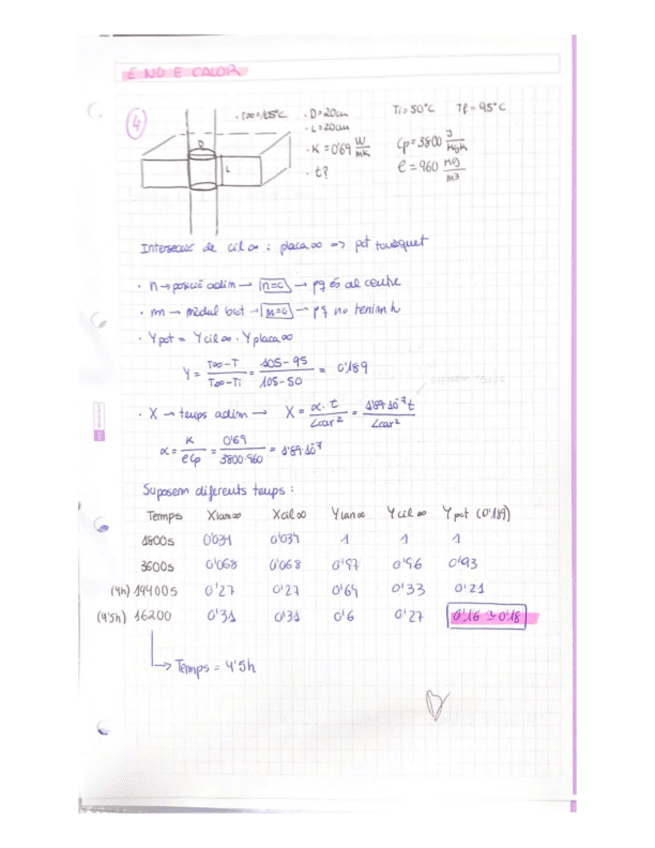 E NO E CALOR
④ · T∞=105°C · D=20cm Ti=50°C Tf=95°C
· L=20cm
· K=0'69 W/mK Cp=3800 J/kgK
· t? ρ=960 kg/m3
D
L
Intersecció de cil ∞ : placa ∞ => pot
· n → posició adim → n=0 → pq és al centre
· m → mòdul biot → m=0 → pq no tenim h
· Y pot = Y cil ∞ · Y placa ∞
Y = T∞-T / T∞-Ti = 105-95 / 105-50 = 0'189
· X → temps adim → X = α·t / Lcar² = 1'89·10⁻⁷t / Lcar²
α = K / ρCp = 0'69 / 3800·960 = 1'89·10⁻⁷
Suposem diferents temps :
Temps Xlam∞ Xcil∞ Ylam∞ Ycil∞ Ypot (0'189)
1800s 0'034 0'034 1 1 1
3600s 0'068 0'068 0'97 0'96 0'93
(4h) 14400s 0'27 0'27 0'64 0'33 0'21
(4'5h) 16200 0'31 0'31 0'6 0'27 0'16 ≃ 0'18
→ Temps = 4'5h